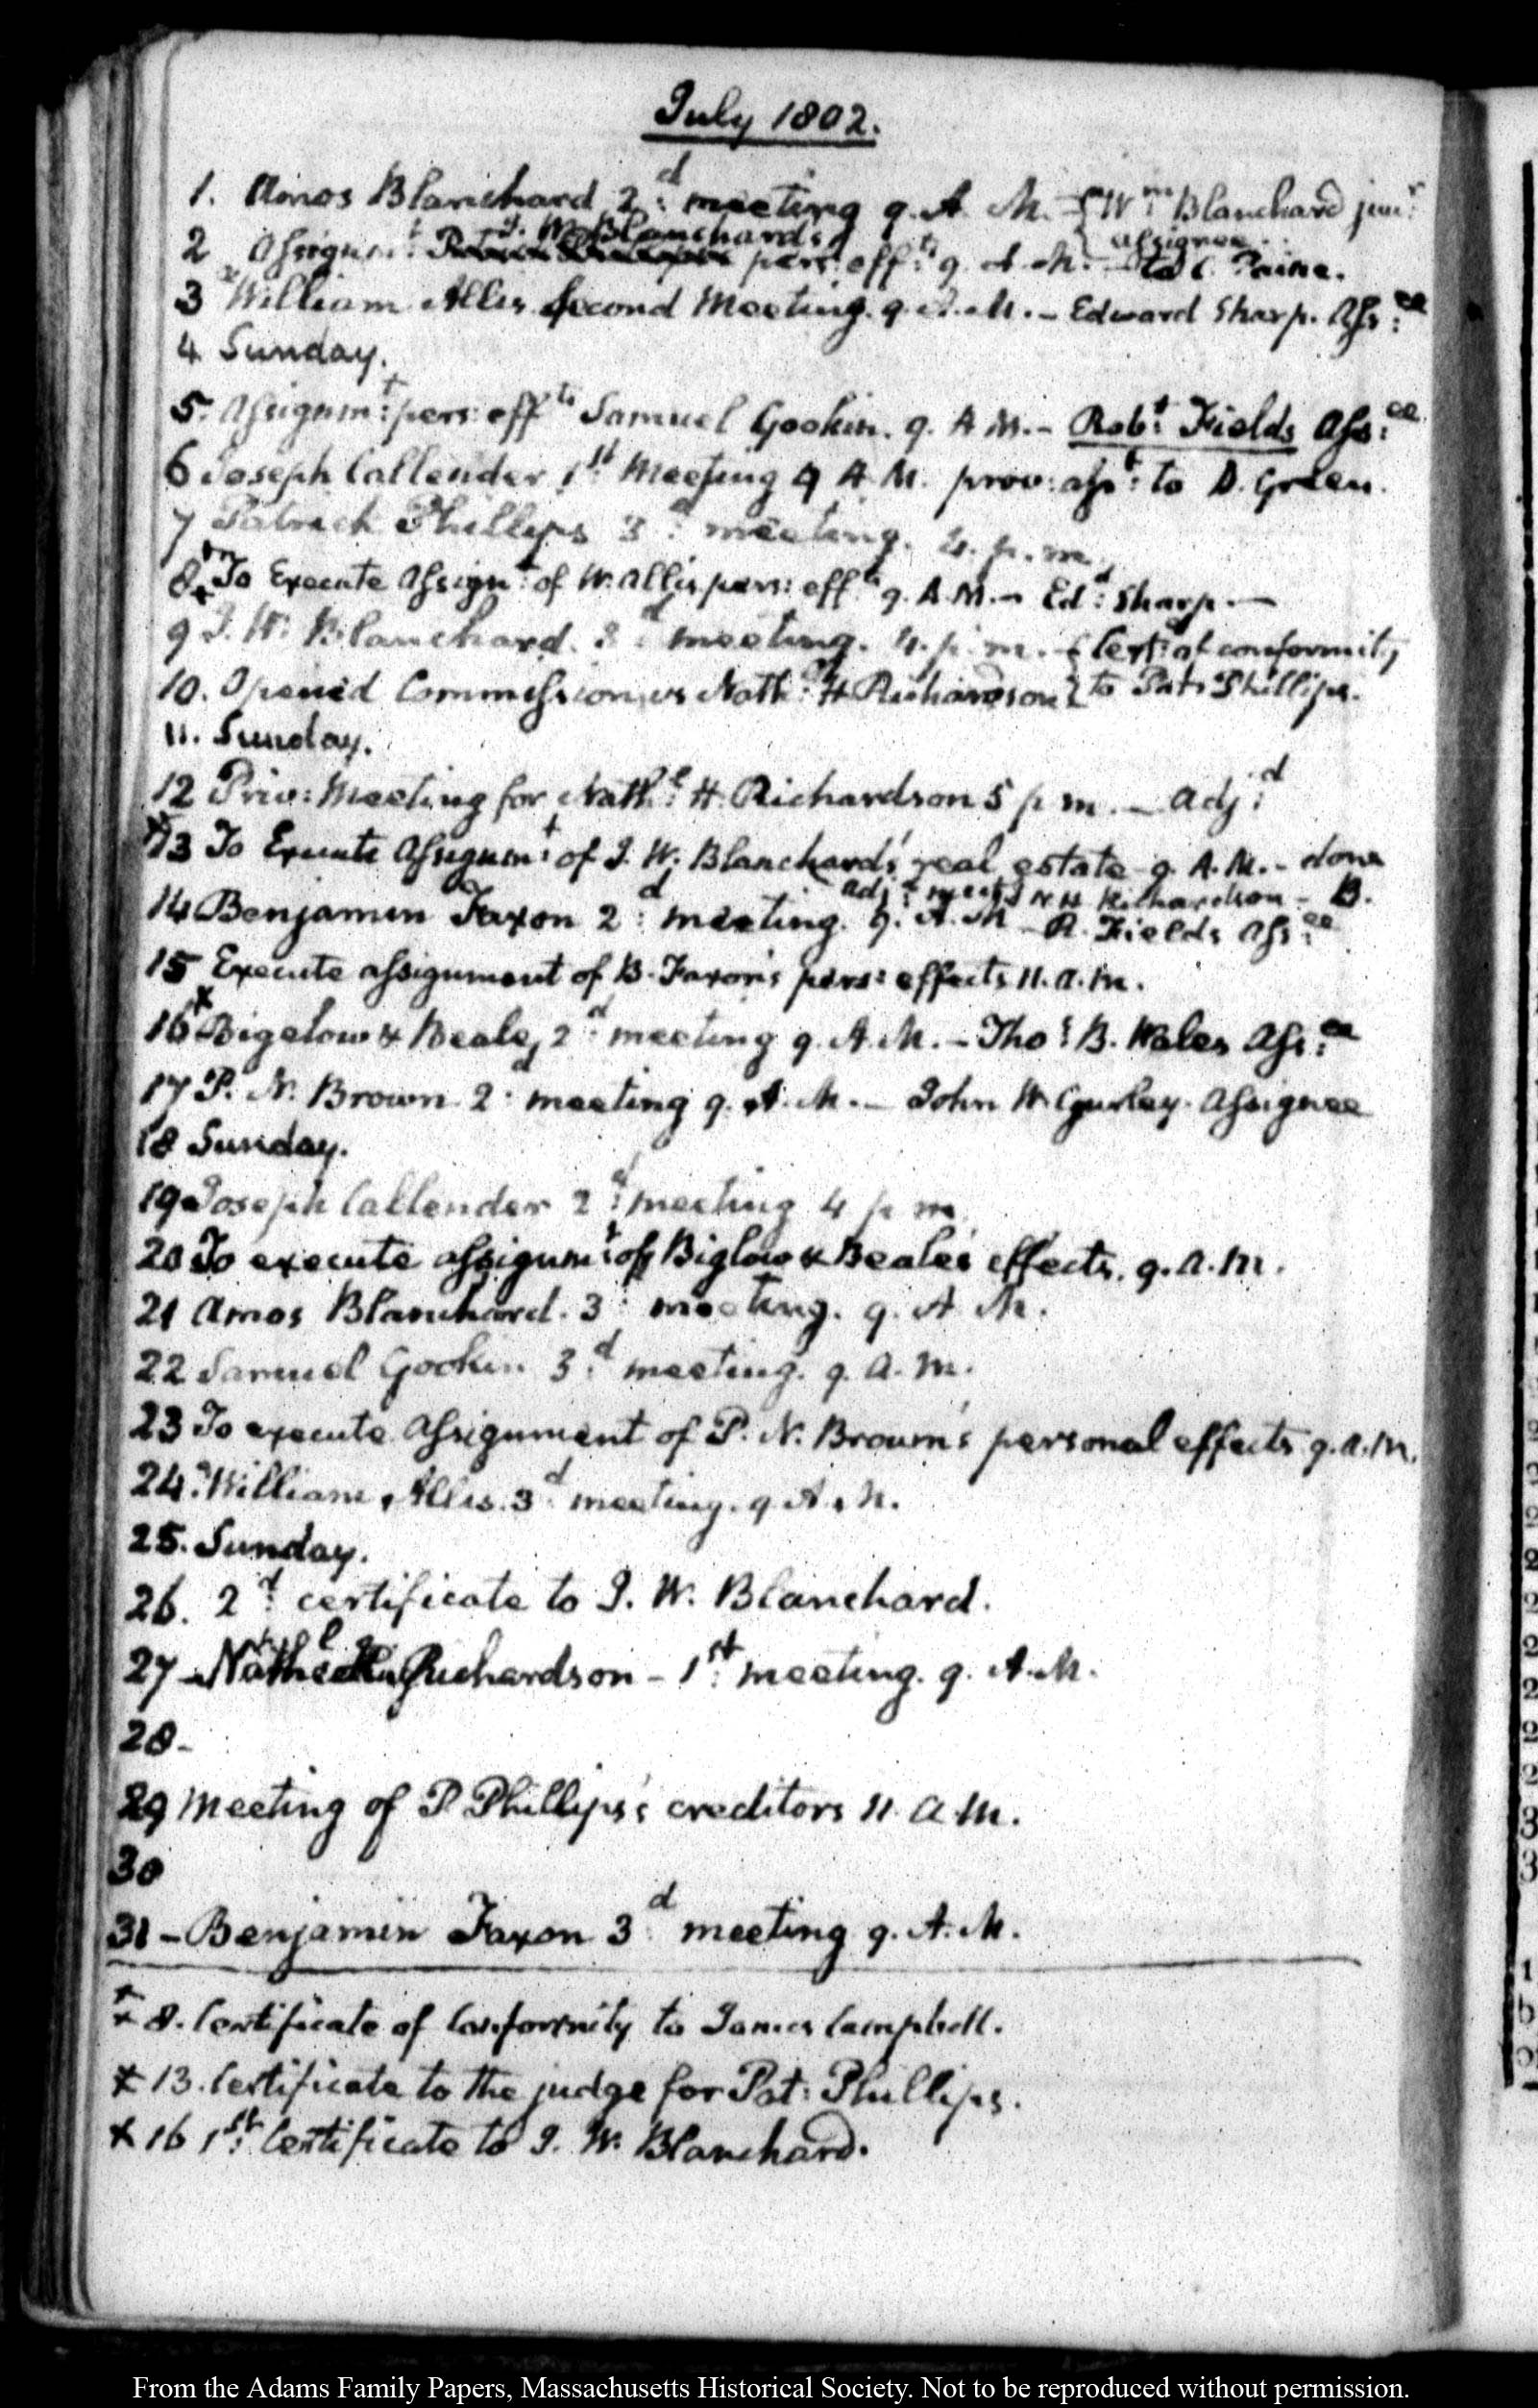 July 1802.
1. Amos Blanchard 2.d meeting 9. A. M. - { Wm Blanchard junr
assignee.
J. W. Blanchards
2 Assignmt: pers: effts: 9. A. M. - to C. Paine.
3 William Allis Second Meeting. 9. A. M. - Edward Sharp. Ass:ee
4 Sunday.
5. Assignmt: pers: effts Samuel Gookin. 9. A M. - Robt: Fields Ass:ee
6 Joseph Callender 1st: Meeting 9 A. M. prov: asst: to D. Green.
7 Patrick Phillips 3:d meeting. 4. p. m.
8.* To Execute Assignt: of W. Allis pers: effts 9. A. M. - Ed:d Sharp. —
9 J. W. Blanchard. 3:d meeting. 4. p. m. - { Cert: of conformity
10. Opened Commission vs Nath:l H Richardson { to Pat: Phillips.
11. Sunday.
12 Priv: Meeting for Nath:l H. Richardson 5 p m. - Adj:d
*13 To Execute Assignmt: of J. W. Blanchards' real estate 9. A. M. - done
Adj:d meetg N H Richardson - B.
14 Benjamin Faxon 2:d meeting. 9. A. M - R. Fields Ass:ee
15 Execute assignment of B. Faxon's pers: effects 11. a. m.
16* Bigelow & Beale, 2:d meeting 9. A. M. - Tho:s B. Wales Ass:ee
17 P. N. Brown 2:d meeting 9. A. M. - John W. Gurley. Assignee
18 Sunday.
19 Joseph Callender 2:d meeting 4 p m
20 To execute assignmt: of Biglow & Beale's effects. 9. a. m.
21 Amos Blanchard. 3: meeting. 9. A. M.
22 Samuel Gookin 3:d meeting. 9. a. m.
23 To execute assignment of P. N. Brown's personal effects 9. a. m.
24. William Allis. 3:d meeting. 9. A. M.
25. Sunday.
26. 2:d certificate to J. W. Blanchard.
27 - Nathl: H. Richardson - 1st: meeting. 9. A. M.
28 -
29 Meeting of P Phillips's creditors 11. A. M.
30
31 - Benjamin Faxon 3:d meeting 9. A. M.
* 8. Certificate of Conformity to James Campbell.
* 13. Certificate to the judge for Pat: Phillips.
* 16 1st: Certificate to J. W. Blanchard.
From the Adams Family Papers, Massachusetts Historical Society. Not to be reproduced without permission.